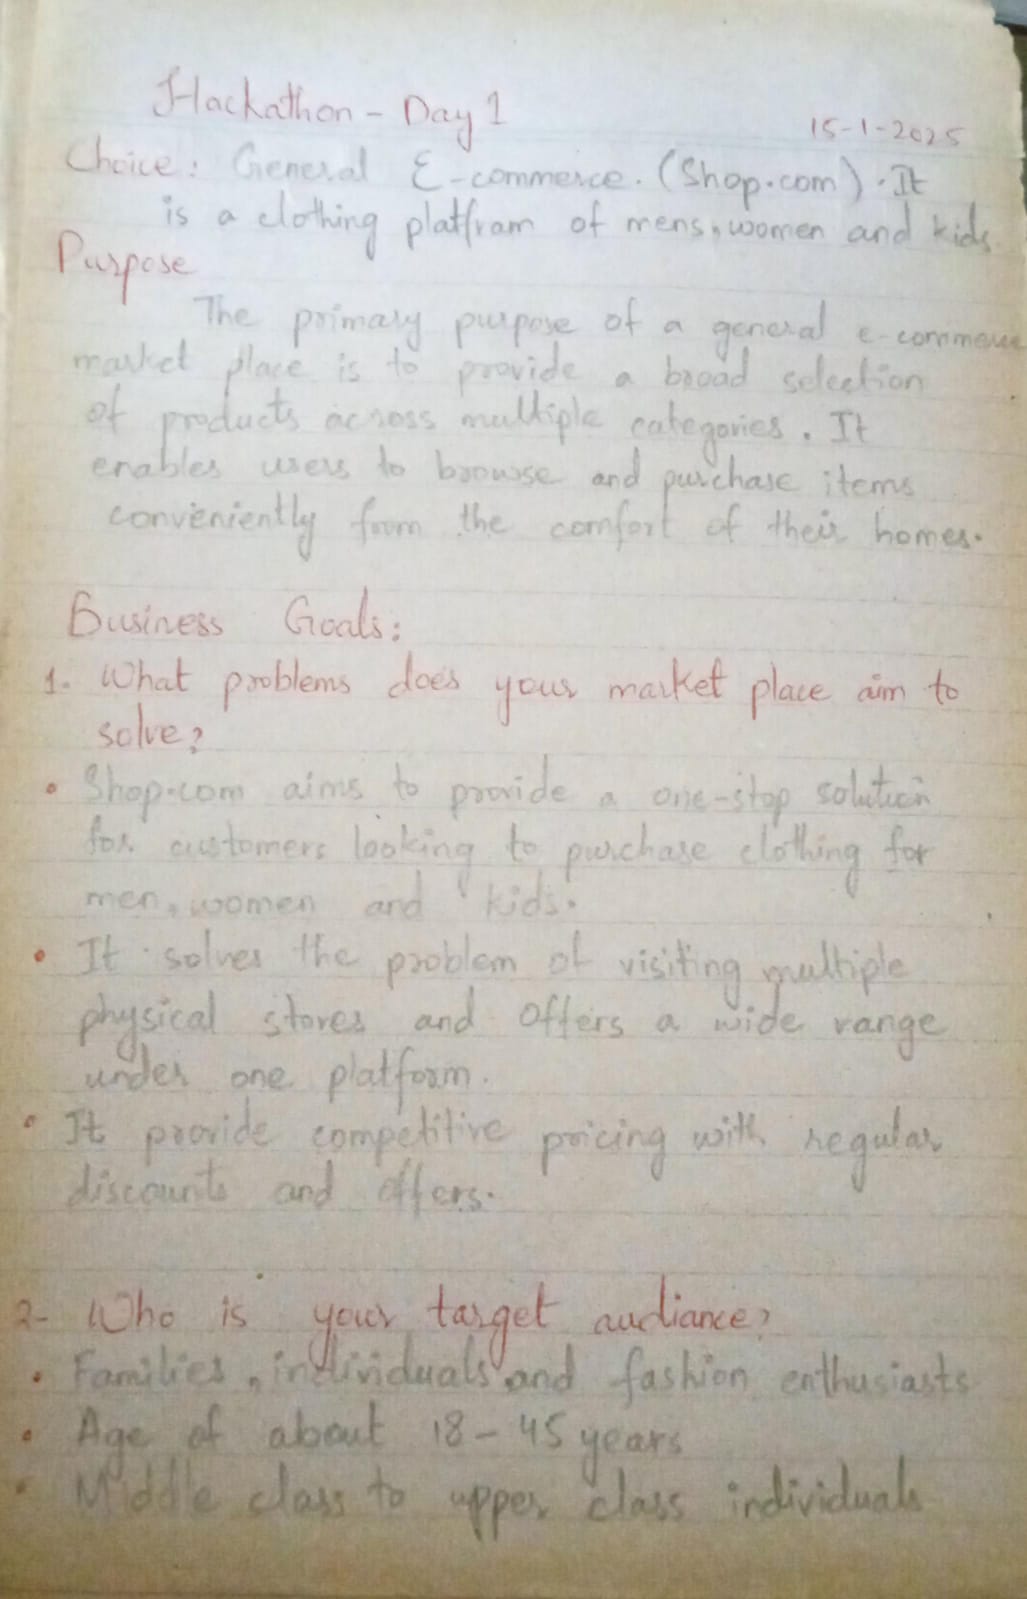 Hackathon - Day 1
15-1-2025
Choice: General E-commerce. (Shop.com). It
is a clothing platfram of mens, women and kids.
Purpose
The primary purpose of a general e-commerce
market place is to provide a broad selection
of products across multiple categories. It
enables users to browse and purchase items
conveniently from the comfort of their homes.
Business Goals:
1. What problems does your market place aim to
solve?
• Shop.com aims to provide a one-stop solution
for customers looking to purchase clothing for
men, women and kids.
• It solves the problem of visiting multiple
physical stores and offers a wide range
under one platform.
• It provide competitive pricing with regular
discounts and offers.
2- Who is your target audiance?
• Families, individuals and fashion enthusiasts
• Age of about 18-45 years
• Middle class to upper class individuals